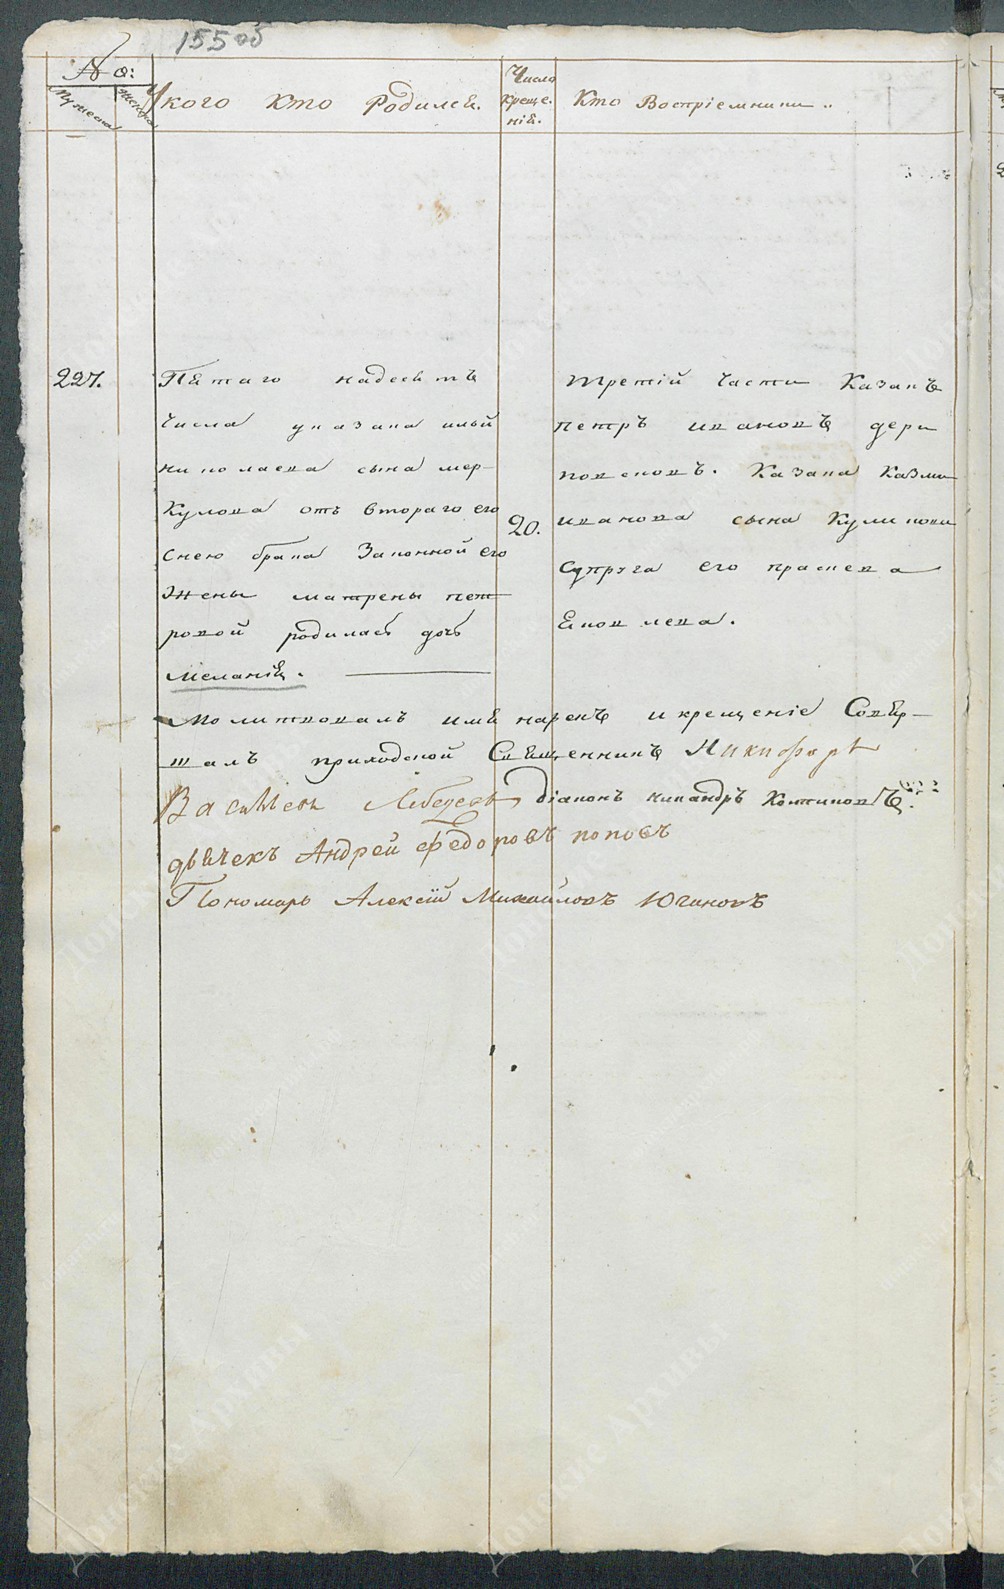 155об
№:
Мужеска
Женска
У кого кто Родился.
Число
креще-
нія.
Кто Воспріемники
227.
Пятаго надесять
Числа у казака ильи
николаева сына мер-
кулова отъ втораго его
снею брака Законной его
Жены матрены пет-
ровой родилась дочь
Меланія.
20.
третій части Казакъ
петръ ивановъ дери
повсковъ. Казака Казми
иванова сына Куликова
Супруга его
Молитвовалъ имя нарекъ и крещеніе Совер-
шалъ приходской Священникъ Никифоръ
Васильевъ Лебедевъ діаконъ никандръ
дьячекъ Андрей Федоровъ поповъ
Пономарь Алексѣй Михайловъ Югановъ